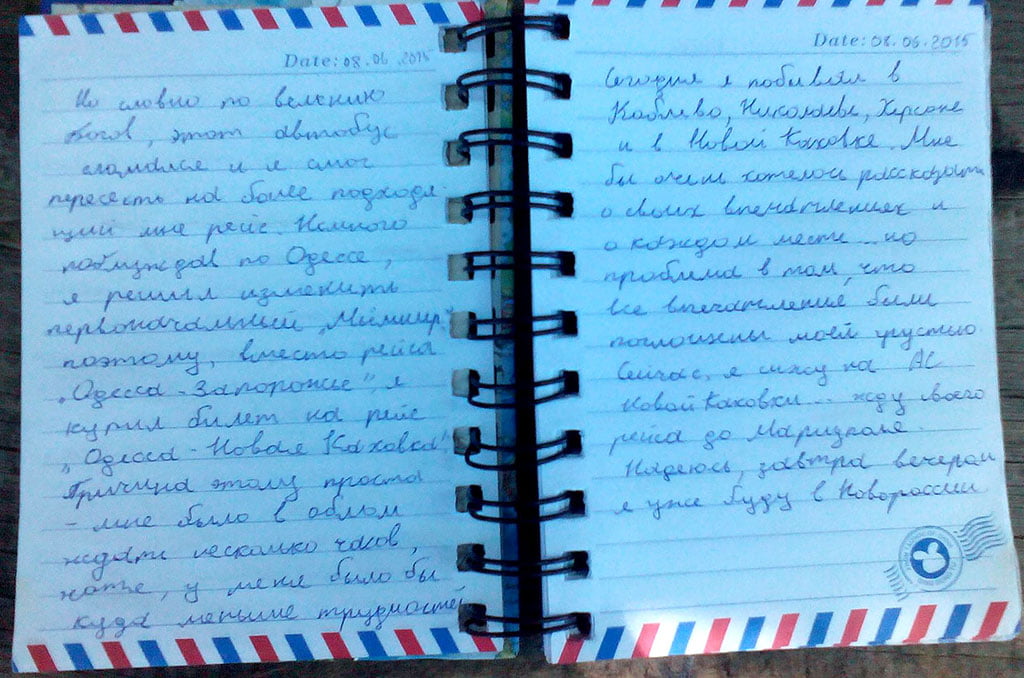 Date: 08.06.2015
Но словно по велению
Богов, этот автобус
сломался и я смог
пересесть на более подходя-
щий мне рейс. Немного
поблуждав по Одессе,
я решил изменить
первоначальный
поэтому, вместо рейса
„Одесса - Запорожье" я
купил билет на рейс
„Одесса - Новая Каховка".
Причина этому проста
- мне было в облом
ждать несколько часов,
хотя, у меня было бы
куда меньше трудностей
Date: 08.06.2015
Сегодня я побывал в
Коблево, Николаеве, Херсоне
и в Новой Каховке. Мне
бы очень хотелось рассказать
о своих впечатлениях и
о каждом месте... но
проблема в том, что
все впечатления были
поглощены моей грустью.
Сейчас, я сижу на АС
Новой Каховки... жду своего
рейса до Мариуполя.
Надеюсь, завтра вечером
я уже буду в Новороссии